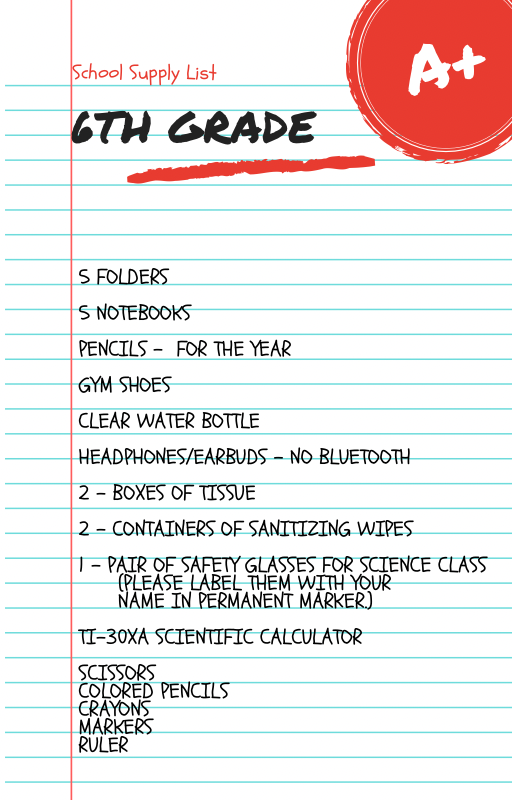 A+
School Supply List
6TH GRADE
5 FOLDERS
5 NOTEBOOKS
PENCILS - FOR THE YEAR
GYM SHOES
CLEAR WATER BOTTLE
HEADPHONES/EARBUDS - NO BLUETOOTH
2 - BOXES OF TISSUE
2 - CONTAINERS OF SANITIZING WIPES
1 - PAIR OF SAFETY GLASSES FOR SCIENCE CLASS
(PLEASE LABEL THEM WITH YOUR
NAME IN PERMANENT MARKER.)
TI-30XA SCIENTIFIC CALCULATOR
SCISSORS
COLORED PENCILS
CRAYONS
MARKERS
RULER